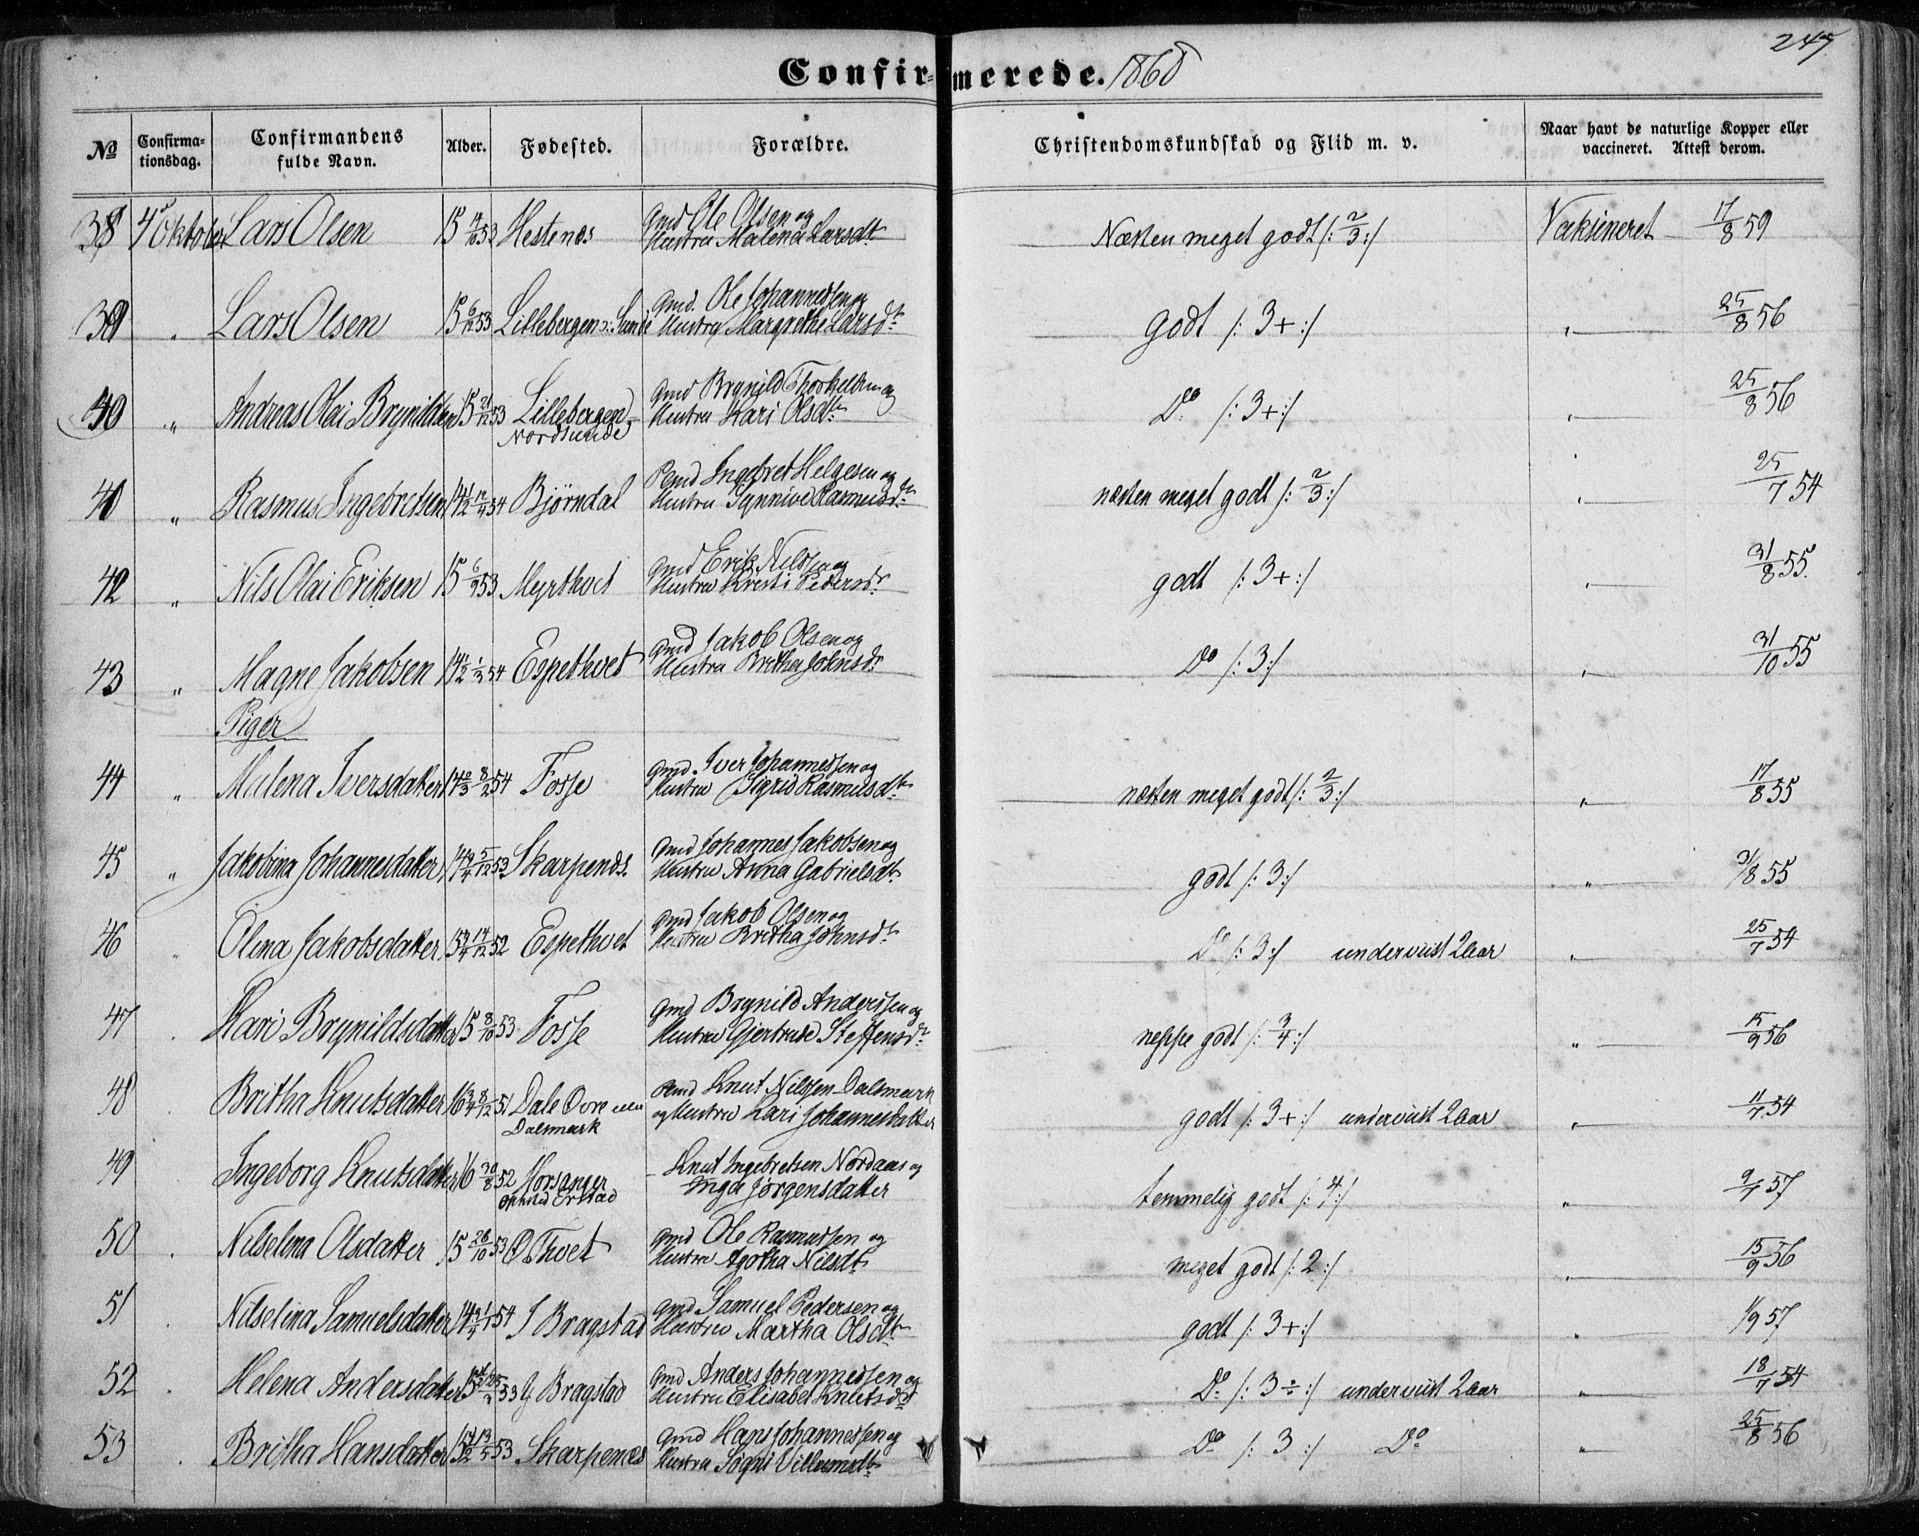 247
Confirmerede. 1868
№ Confirmationsdag. Confirmandens fulde Navn. Alder. Fødested. Forældre. Christendomskundskab og Flid m. v. Naar havt de naturlige Kopper eller vaccineret. Attest derom.
38 4de Oktober Lars Olsen 15 14/10 53 Hestenes Gmd Ole Olsen og Hustru Malena Larsdtr Næsten meget godt /: 2/3 :/ Vaksineret 17/8 59
39 " Lars Olsen 15 6/12 53 Lillebergen i Sunde Gmd. Ole Johannessen og Hustru Margrethe Larsdtr godt /: 3+ :/ " 25/8 56
40 " Andreas Olai Brynildsen 15 21/12 53 Lillebergen Nordsunde Gmd Brynild Thorkelsen og Hustru Kari Olsdtr Do /: 3+ :/ " 25/8 56
41 " Rasmus Ingebretsen 14 1/2 12/4 54 Bjørndal Pmd Ingebret Helgesen og Hustru Synnive Rasmusdtr næsten meget godt /: 2/3 :/ " 25/7 54
42 " Nils Olai Eriksen 15 6/9 53 Myrthvet Gmd Erik Nilssen og Hustru Kristi Pedersdtr godt /: 3+ :/ " 31/8 55.
43 " Magne Jakobsen 14 1/2 1/3 54 Espethvet Gmd Jakob Olsen og Hustru Britha Johnsdtr Do /: 3 :/ " 31/10 55
Piger
44 " Malena Iversdatter 14 2/3 8/2 54 Fosse Gmd. Iver Johannessen og Hustru Sigrid Rasmusdtr næsten meget godt /: 2/3 :/ " 17/8 55
45 " Jakobina Johannesdatter 14 3/4 5/12 53 Skarpenes. Gmd Johannes Jakobsen og Hustru Anna Gabrielsdtr godt /: 3 :/ " 31/8 55
46 " Olina Jakobsdatter 15 3/4 14/12 52 Espethvet Gmd Jakob Olsen og Hustru Britha Johnsdtr Do /: 3 :/ underviist 2 Aar " 25/7 54
47 . Kari Brynildsdatter 15 8/10 53 Fosse Gmd Brynild Anderssen og Hustru Gjertrude Steffensdtr neppe godt /: 3/4 :/ " 15/9 56
48 . Britha Knutsdatter 16 3/4 8/12 51 Dale Øvre Dalsmark Pmd Knut Nilssen Dalsmark og Hustru Kari Johannesdatter godt /: 3+ :/ underviist 2 Aar " 11/7 54
49 Ingeborg Knutsdatter 16 30/8 52 Horsanger Ophold Erstad Knut Ingebretsen Nordaas og Inga Jørgensdatter temmelig godt /: 4 :/ " 9/7 57
50 . Nilselena Olsdatter 15 26/10 53 Ø Thvet Gmd Ole Rasmussen og Hustru Agotha Nilsdtr meget godt /: 2 :/ " 15/9 56
51 . Nilselina Samuelsdatter 14 3/4 1/1 54 I Bragstad Gmd Samuel Pedersen og Hustru Martha Olsdtr godt /: 3+ :/ " 1/9 57
52 . Helena Andersdatter 53 G Bragstad Gmd Anders Johannessen og Hustru Elisabet Knutsdtr Do /: 3÷ :/ underviist 2 Aar " 18/7 54
53 . Britha Hansdatter 15 1/2 13/5 53 Skarpenes Gmd Hans Johannessen og Hustru Sogni Villumsdtr Do /: 3 :/ Do " 25/8 56